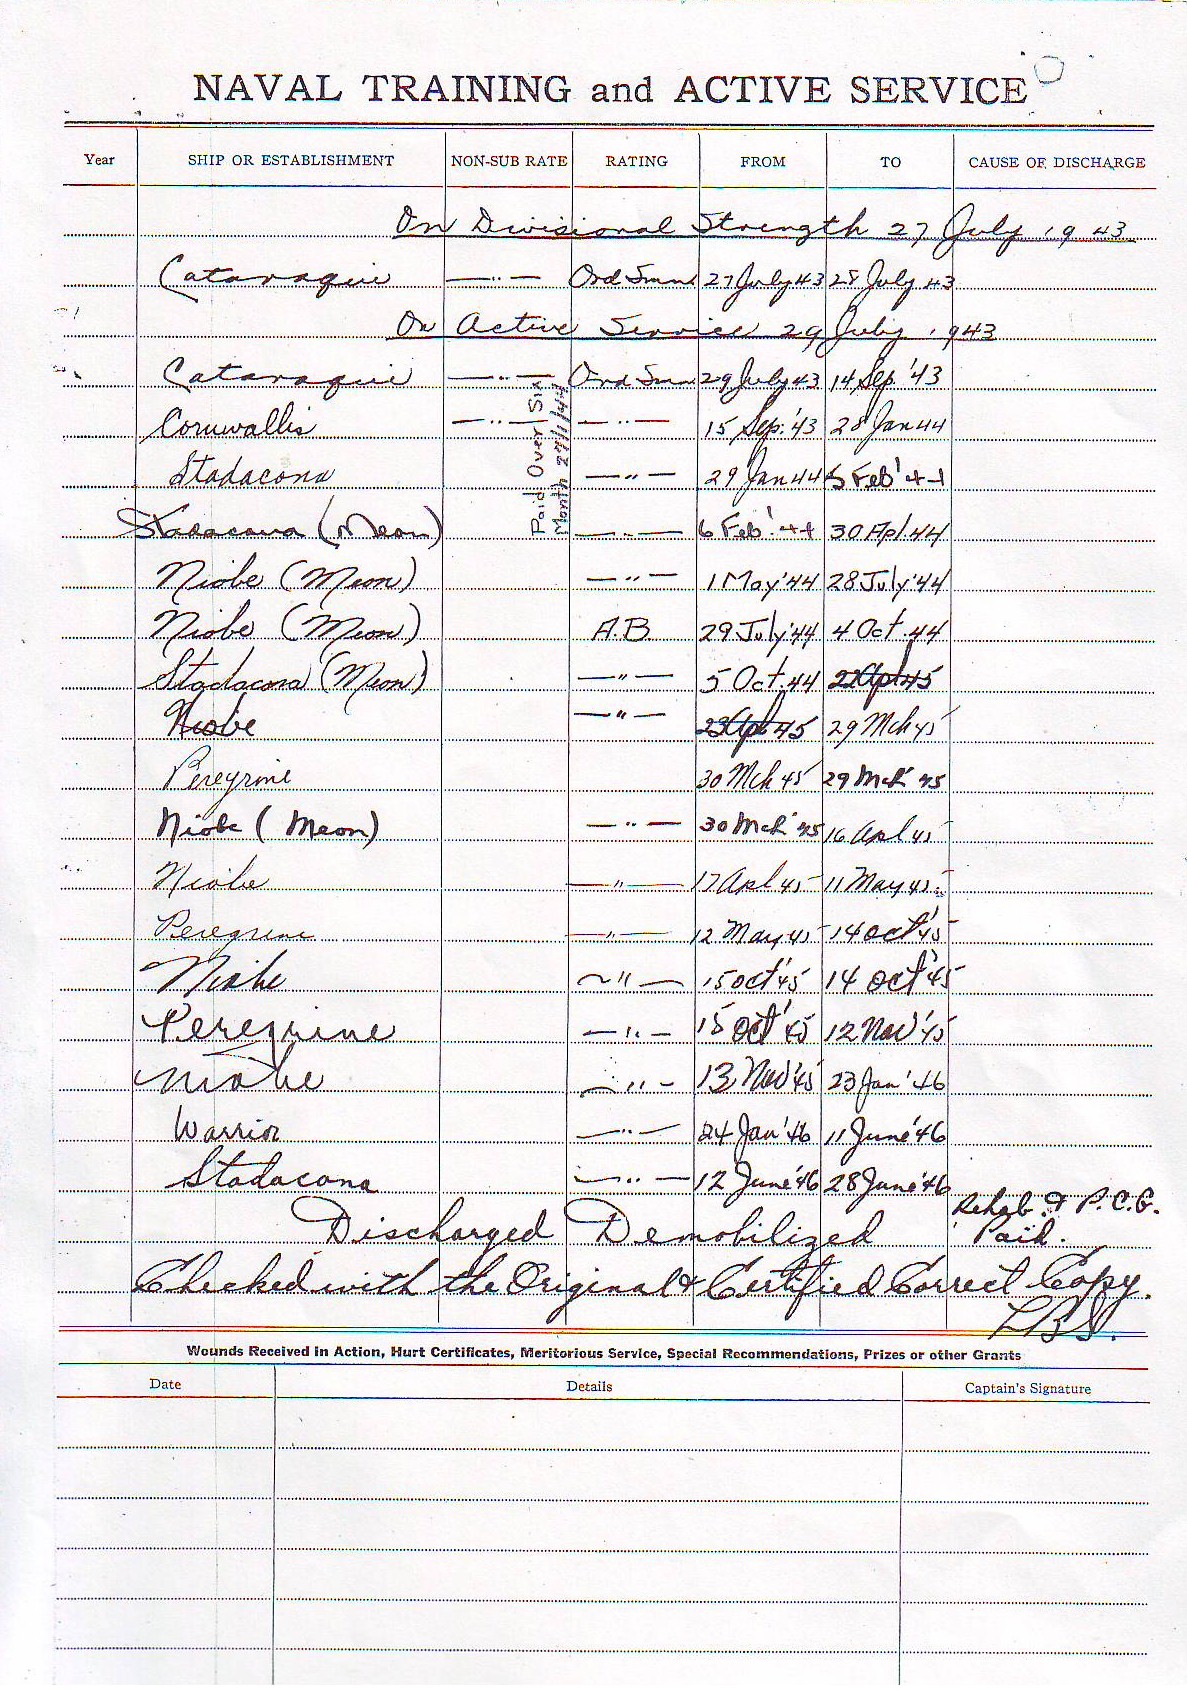 NAVAL TRAINING and ACTIVE SERVICE
Year SHIP OR ESTABLISHMENT NON-SUB RATE RATING FROM TO CAUSE OF DISCHARGE
On Divisional Strength 27 July 1943
Cataraqui —"— Ord Smn 27 July 43 28 July 43
On Active Service 29 July 1943
Cataraqui —"— Ord Smn 29 July 43 14 Sep. '43
Cornwallis —"— —"— 15 Sep. '43 28 Jan 44
Paid Over Six
Month 27/1/44
Stadacona —"— 29 Jan 44 5 Feb '44
Stadacona (Meon) —"— 6 Feb. '44 30 Apl. 44
Niobe (Meon) —"— 1 May '44 28 July '44
Niobe (Meon) A.B. 29 July '44 4 Oct. 44
Stadacona (Meon) —"— 5 Oct. 44 22 Apl 45
Niobe —"— 23 Apl 45 29 Mch 45
Peregrine 30 Mch 45 29 Mch 45
Niobe (Meon) —"— 30 Mch '45 16 Apl 45
Niobe —"— 17 Apl 45 11 May 45
Peregrine —"— 12 May 45 14 Oct '45
Niobe —"— 15 Oct '45 14 Oct '45
Peregrine —"— 15 Oct '45 12 Nov '45
Niobe —"— 13 Nov '45 23 Jan '46
Warrior —"— 24 Jan '46 11 June '46
Stadacona —"— 12 June '46 28 June '46
Discharged Demobilized Rehab. & P.C.G. Paid.
Checked with the Original & Certified Correct Copy.
Wounds Received in Action, Hurt Certificates, Meritorious Service, Special Recommendations, Prizes or other Grants
Date Details Captain's Signature